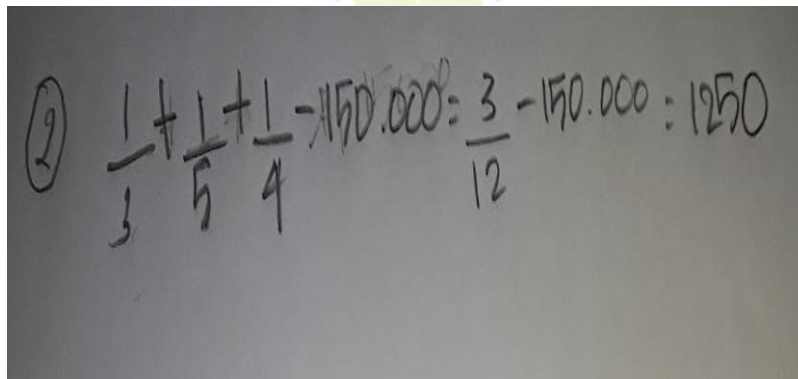 ② 1/3 + 1/5 + 1/4 - 150.000 = 3/12 - 150.000 = 1250